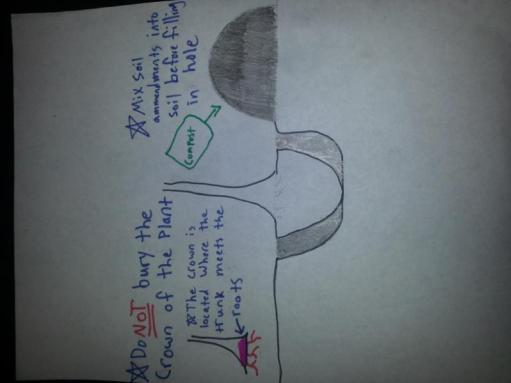 ☆ Do NOT bury the
Crown of the Plant
☆ The Crown is
located where the
trunk meets the
roots
☆ Mix soil
ammendments into
soil before filling
in hole
compost